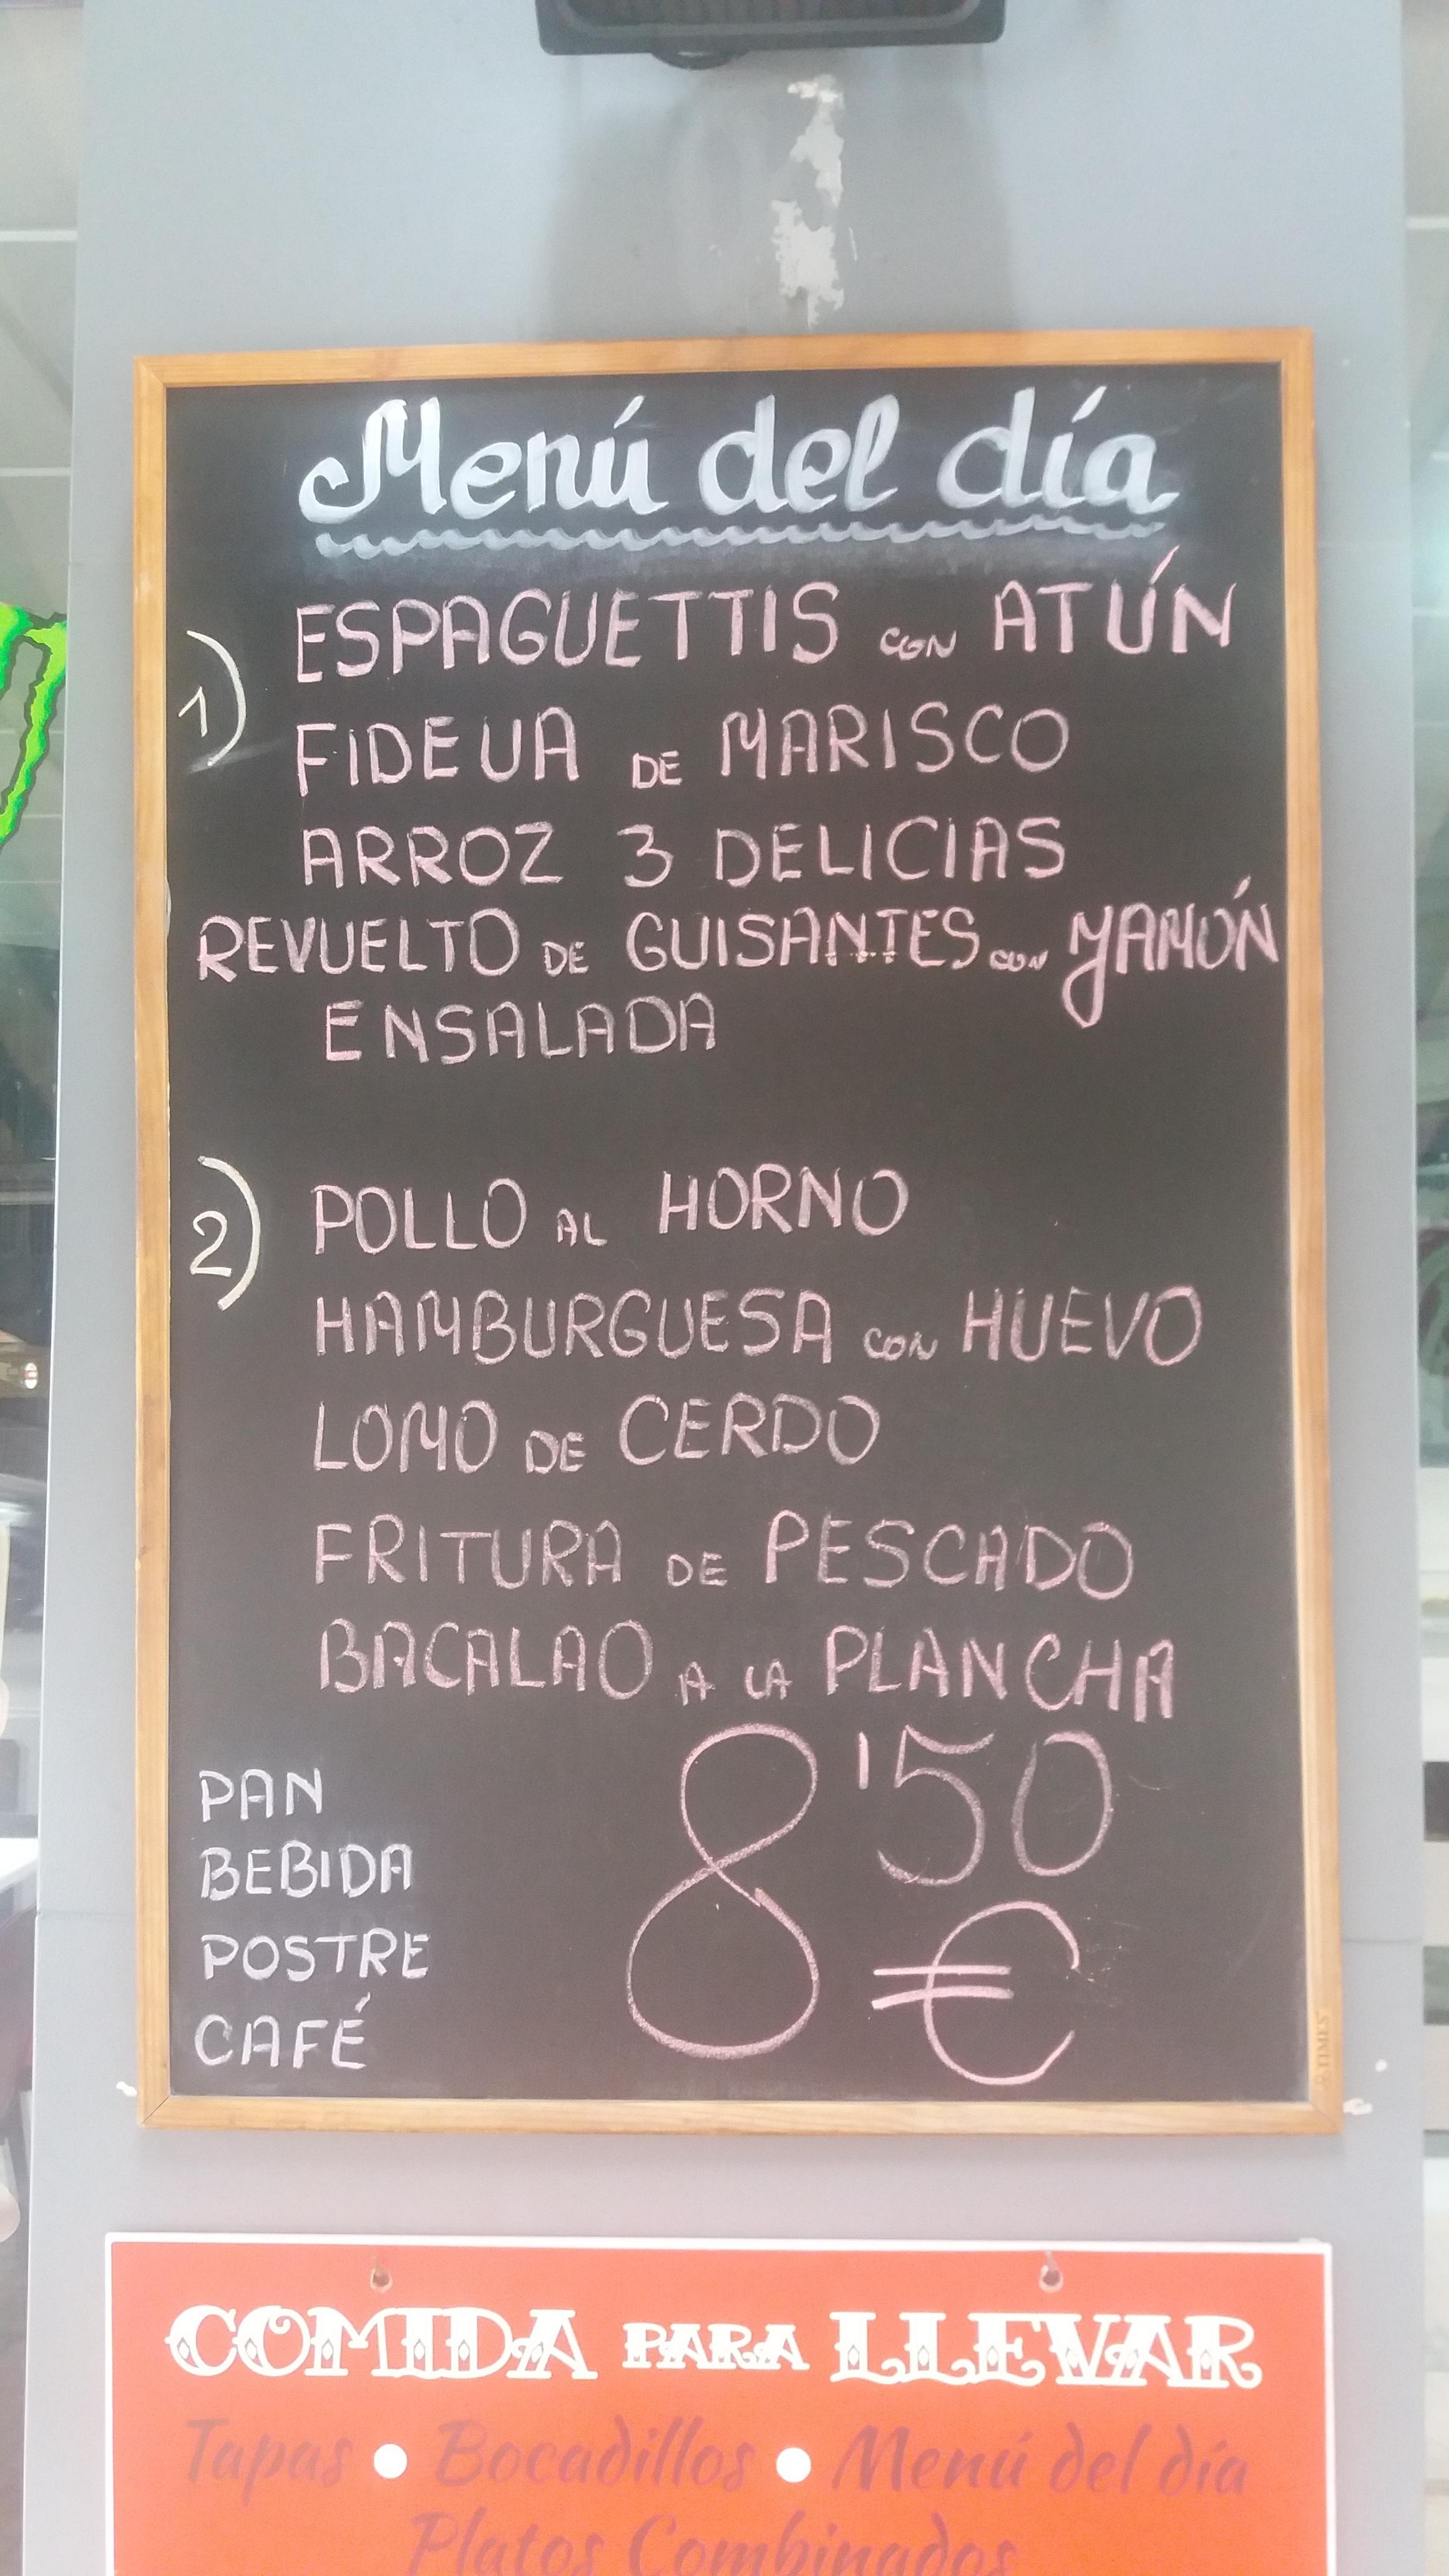 Menú del día
1) ESPAGUETTIS CON ATÚN
FIDEUA DE MARISCO
ARROZ 3 DELICIAS
REVUELTO DE GUISANTES CON JAMÓN
ENSALADA
2) POLLO AL HORNO
HAMBURGUESA CON HUEVO
LOMO DE CERDO
FRITURA DE PESCADO
BACALAO A LA PLANCHA
PAN
BEBIDA
POSTRE
CAFÉ
8'50
€
COMIDA PARA LLEVAR
Tapas • Bocadillos • Menú del día
Platos Combinados